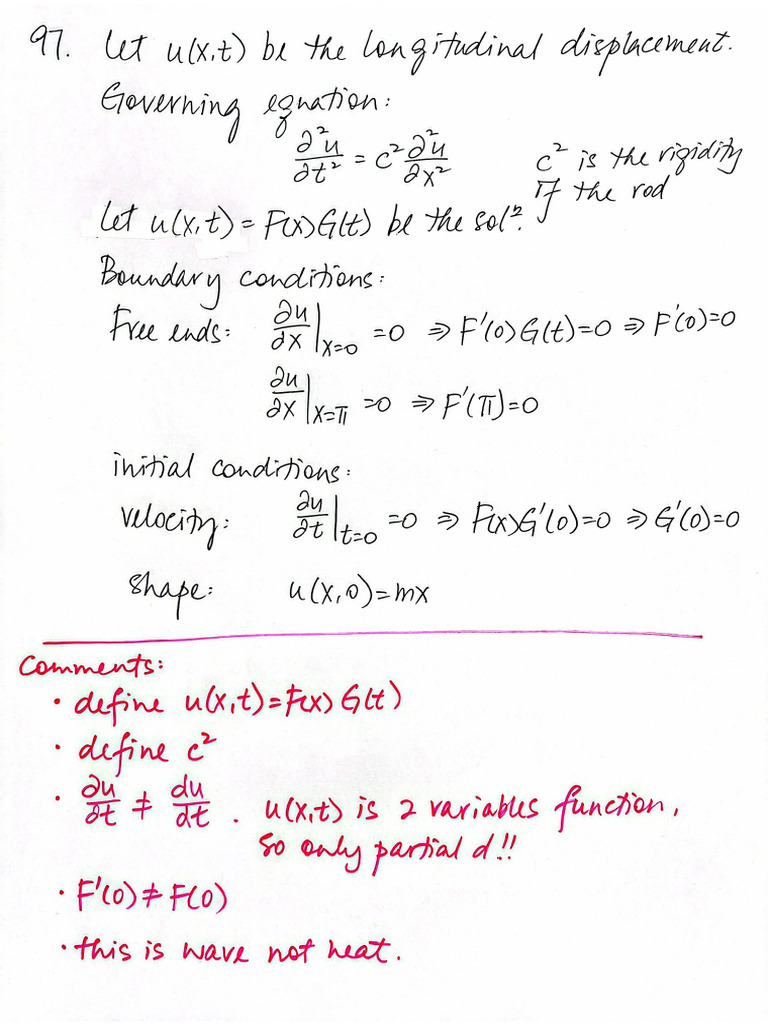 97. Let u(x,t) be the longitudinal displacement.
Governing equation:
∂²u/∂t² = c² ∂²u/∂x²
c² is the rigidity
if the rod
Let u(x,t) = F(x)G(t) be the solⁿ.
Boundary conditions:
Free ends: ∂u/∂x|ₓ₌₀ = 0 ⇒ F'(0)G(t)=0 ⇒ F'(0)=0
∂u/∂x|x=π = 0 ⇒ F'(π)=0
initial conditions:
velocity: ∂u/∂t|t=0 = 0 ⇒ F(x)G'(0)=0 ⇒ G'(0)=0
shape: u(x,0)=mx
Comments:
• define u(x,t)=F(x)G(t)
• define c²
• ∂u/∂t ≠ du/dt . u(x,t) is 2 variables function,
so only partial d!!
• F'(0)≠F(0)
• this is wave not heat.